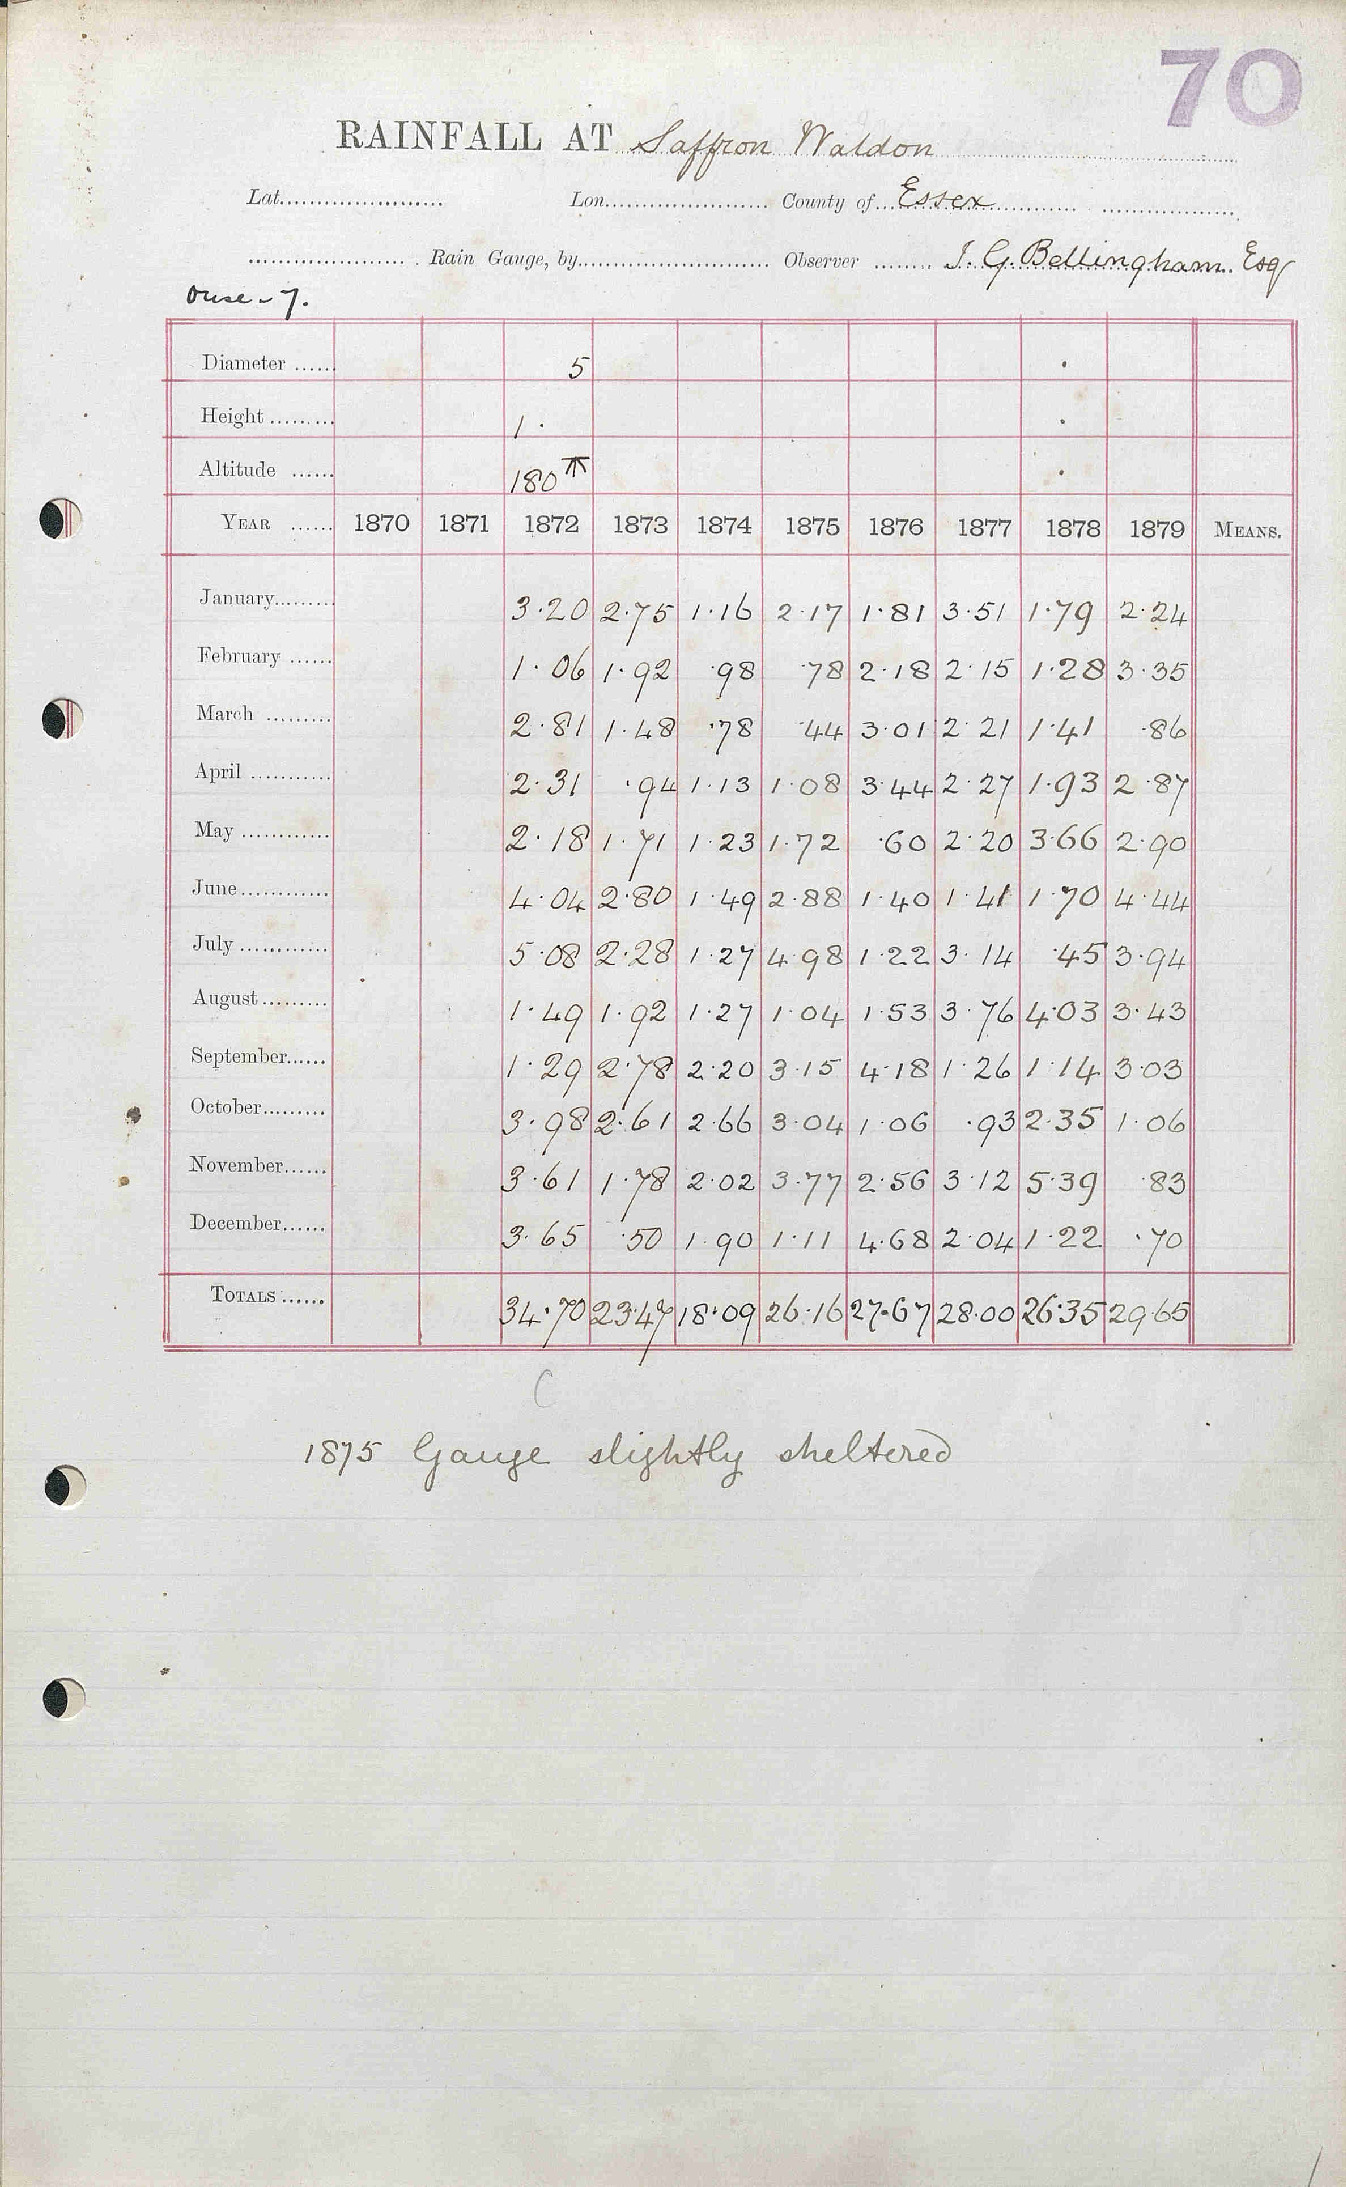 70
RAINFALL AT Saffron Waldon
Lat. Lon. County of Essex
Rain Gauge, by Observer J. G. Bellingham. Esq
Ouse - 7.
Diameter 5
Height 1 ·
Altitude 180
YEAR 1870 1871 1872 1873 1874 1875 1876 1877 1878 1879 MEANS.
January 3·20 2·75 1·16 2·17 1·81 3·51 1·79 2·24
February 1·06 1·92 ·98 ·78 2·18 2·15 1·28 3·35
March 2·81 1·48 ·78 ·44 3·01 2·21 1·41 ·86
April 2·31 ·94 1·13 1·08 3·44 2·27 1·93 2·87
May 2·18 1·71 1·23 1·72 ·60 2·20 3·66 2·90
June 4·04 2·80 1·49 2·88 1·40 1·41 1·70 4·44
July 5·08 2·28 1·27 4·98 1·22 3·14 ·45 3·94
August 1·49 1·92 1·27 1·04 1·53 3·76 4·03 3·43
September 1·29 2·78 2·20 3·15 4·18 1·26 1·14 3·03
October 3·98 2·61 2·66 3·04 1·06 ·93 2·35 1·06
November 3·61 1·78 2·02 3·77 2·56 3·12 5·39 ·83
December 3·65 ·50 1·90 1·11 4·68 2·04 1·22 ·70
TOTALS 34·70 23·47 18·09 26·16 27·67 28·00 26·35 29·65
C
1875 Gauge slightly sheltered